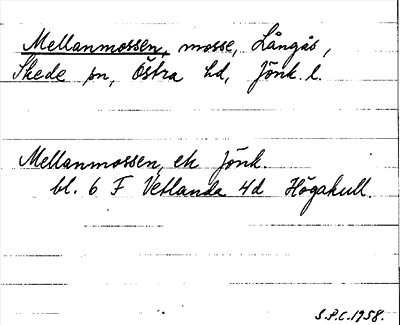 Mellanmossen, mosse, Långås,
Skede sn, Östra hd, Jönk. l.
Mellanmossen, ek Jönk.
bl. 6 F Vetlanda 4d Högakull.
S.P.C. 1958.